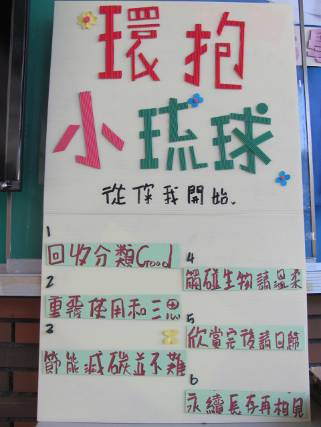 環抱
小琉球
從你我開始.
1
回收分類Good
2
重覆使用和三思
3
節能減碳並不難
4
觸碰生物請溫柔
5
欣賞完後請回歸
6
永續長存再相見